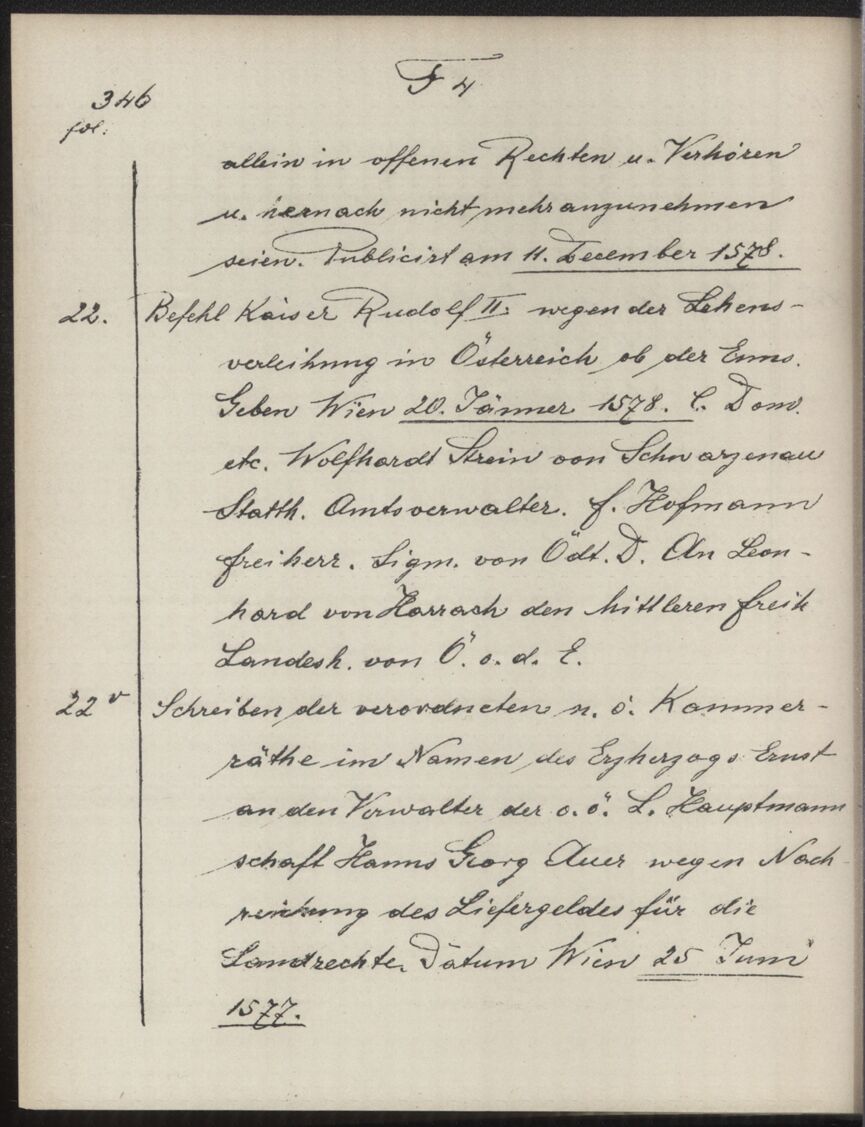 F 4
346
fol:
allein in offenen Rechten u. Verhören
u. hernach nicht mehr anzunehmen
seien. Publicirt am 11. December 1578.
22. Befehl Kaiser Rudolf II. wegen der Lehens-
verleihung in Österreich ob der Enns.
Geben Wien 20. Jänner 1578. C. Dom.
etc. Wolfhardt Strein von Schwarzenau
Statth. Amtsverwalter. f. Hofmann
freiherr. Sigm. von Ödt. D. An Leon-
hard von Harrach den mittleren freih
Landesh. von Ö. o. d. E.
22 v Schreiben der verordneten n. ö. Kammer-
räthe im Namen des Erzherzogs Ernst
an den Verwalter der o. ö. L. Hauptmann
schaft Hanns Georg Auer wegen Nach
reichung des Liefergeldes für die
Landrechte. Datum Wien 25 Juni
1577.